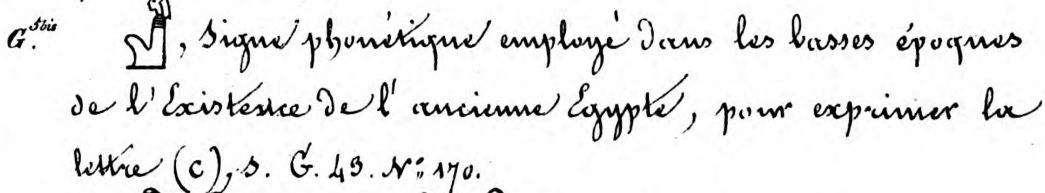 G. 5bis , Signe phonétique employé dans les basses époques
de l'Existence de l'ancienne Egypte, pour exprimer la
lettre (c), s. G. 43. N.º 170.